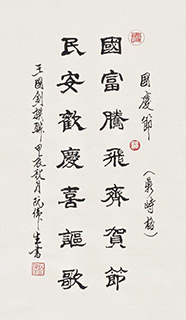 國慶節
(新時韵)
國富騰飛齊賀節
民安歡慶喜謳歌
王國釗撰聯 甲辰秋月 阮偉生書